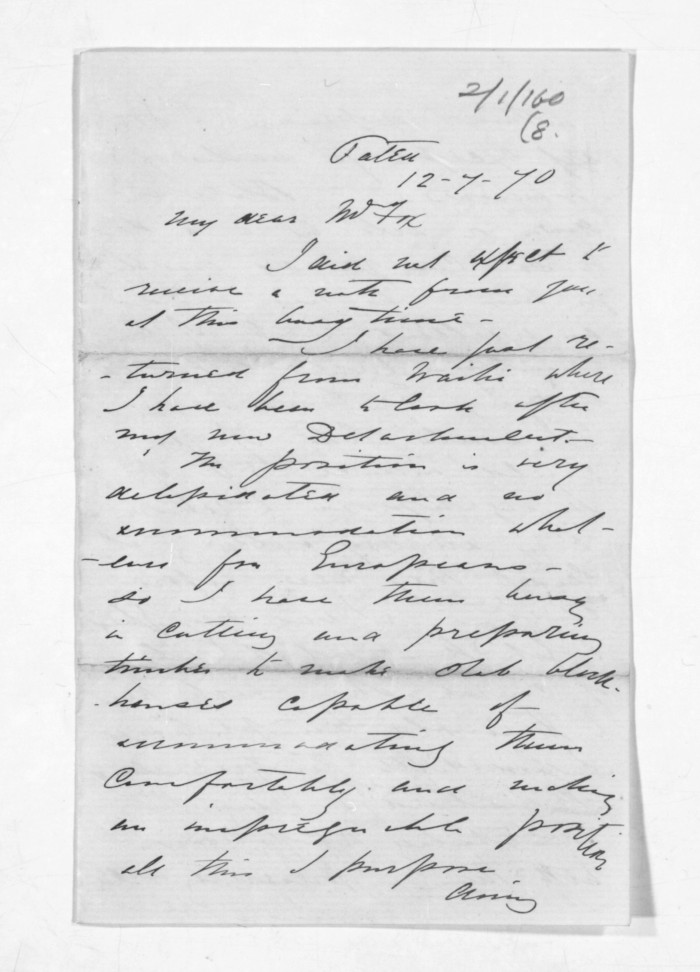 2/1/160
(8.
Patea
12-7-70
My dear Mr Fox
I did not expect to
receive a note from you
at this busy time -
I have just re-
-turned from Waihi where
I have been to look after
my new Detachment -
The position is very
delapidated and no
accommodation what-
-ever for Europeans -
so I have them busy
in cutting and preparing
timber to make slab block-
-houses capable of
accommodating them
Comfortably and making
an impregnable position
all this I purpose
doing